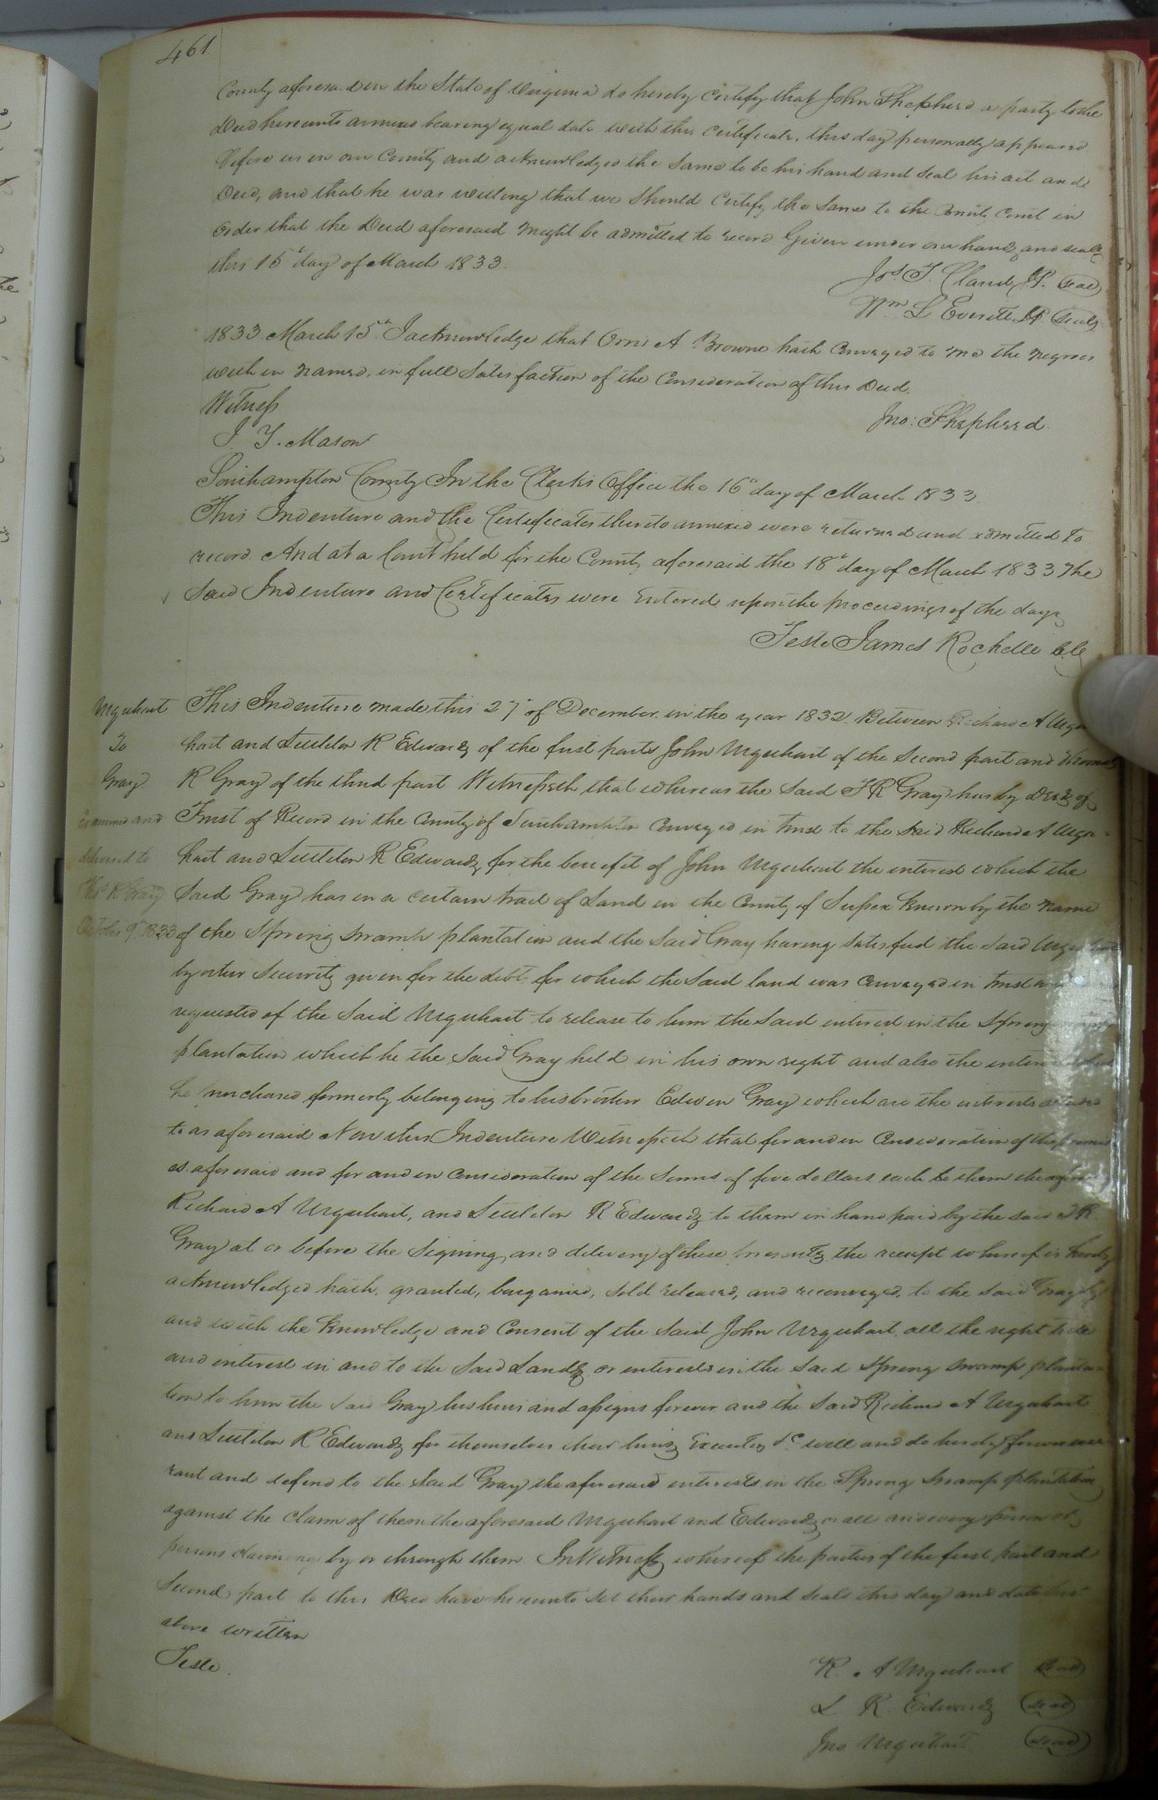 461
County aforesaid in the State of Virginia do hereby certify that John Shepherd a party to the
Deed hereunto annexed bearing equal date with this certificate, this day personally appeared
before us in our County and acknowledged the same to be his hand and seal his act and
Deed, and that he was willing that we should Certify the same to the County Court in
order that the Deed aforesaid might be admitted to record Given under our hands and seals
this 15th day of March 1833.
Jos. T. Claud J.P. Seal
Wm L Everett J.P. Seal
1833 March 15th I acknowledge that Orris A. Browne hath Conveyed to me the negroes
with in named, in full Satisfaction of the Consideration of this Deed.
Witness
Jno: Shepherd
J Y. Mason
Southampton County In the Clerks Office the 16th day of March 1833
This Indenture and the Certificates thereto annexed were returned and admitted to
record And at a Court held for the County aforesaid the 18th day of March 1833 The
Said Indenture and Certificates were Entered upon the proceedings of the day
Teste James Rochelle C.C.
Urquhart
To
Gray
Examined and
delivered to
Ths R Gray
October 9th 1833
This Indenture made this 27th of December in the year 1832 Between Richard A Urqu
hart and Littleton R Edwards of the first part John Urquhart of the Second part and Thomas
R Gray of the third part Witnesseth that whereas the Said T R Gray has by Deed of
Trust of Record in the County of Southampton Conveyed in trust to the said Richard A Urqu-
hart and Littleton R Edwards, for the benefit of John Urquhart the interest which the
Said Gray has in a certain tract of Land in the County of Sussex Known by the name
of the Spring Swamp plantation and the Said Gray having satisfied the said Urquhart
by other Security given for the debt for which the Said land was Conveyed in trust
requested of the Said Urquhart to release to him the Said interest in the Spring
plantation which he the Said Gray held in his own right and also the interest
he purchased formerly belonging to his brother Edwin Gray which are the interests
to as aforesaid Now this Indenture Witnesseth that for and in Consideration of the
as aforesaid and for and in Consideration of the Sums of five dollars each to them the
Richard A Urquhart, and Littleton R Edwards to them in hand paid by the said T R
Gray at or before the Signing, and delivery of these presents, the receipt whereof is hereby
acknowledged hath granted, bargained, Sold released, and reconveyed, to the said Gray by
and with the Knowledge and Consent of the Said John Urquhart all the right title
and interest in and to the Said Lands or interests in the Said Spring Swamp planta-
tion to him the said Gray his heirs and assigns forever and the Said Richard A Urquhart
and Littleton R Edwards for themselves their heirs Executors &c will and do hereby forever war
rant and defend to the Said Gray the aforesaid interests in the Spring Swamp plantation
against the claim of them the aforesaid Urquhart and Edwards or all and every person or
persons claiming by or through them In Witness whereof the parties of the first part and
Second part to this Deed have hereunto Set their hands and seals this day and date
above written
Teste.
R. A Urquhart Seal
L. R. Edwards Seal
Jno Urquhart Seal